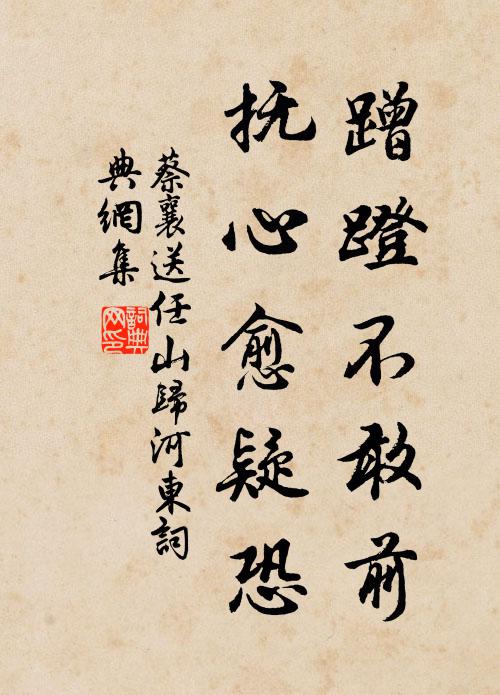 蹭蹬不敢前
抚心愈疑恐
蔡襄送任山歸河東詞
典網集
詞典网印